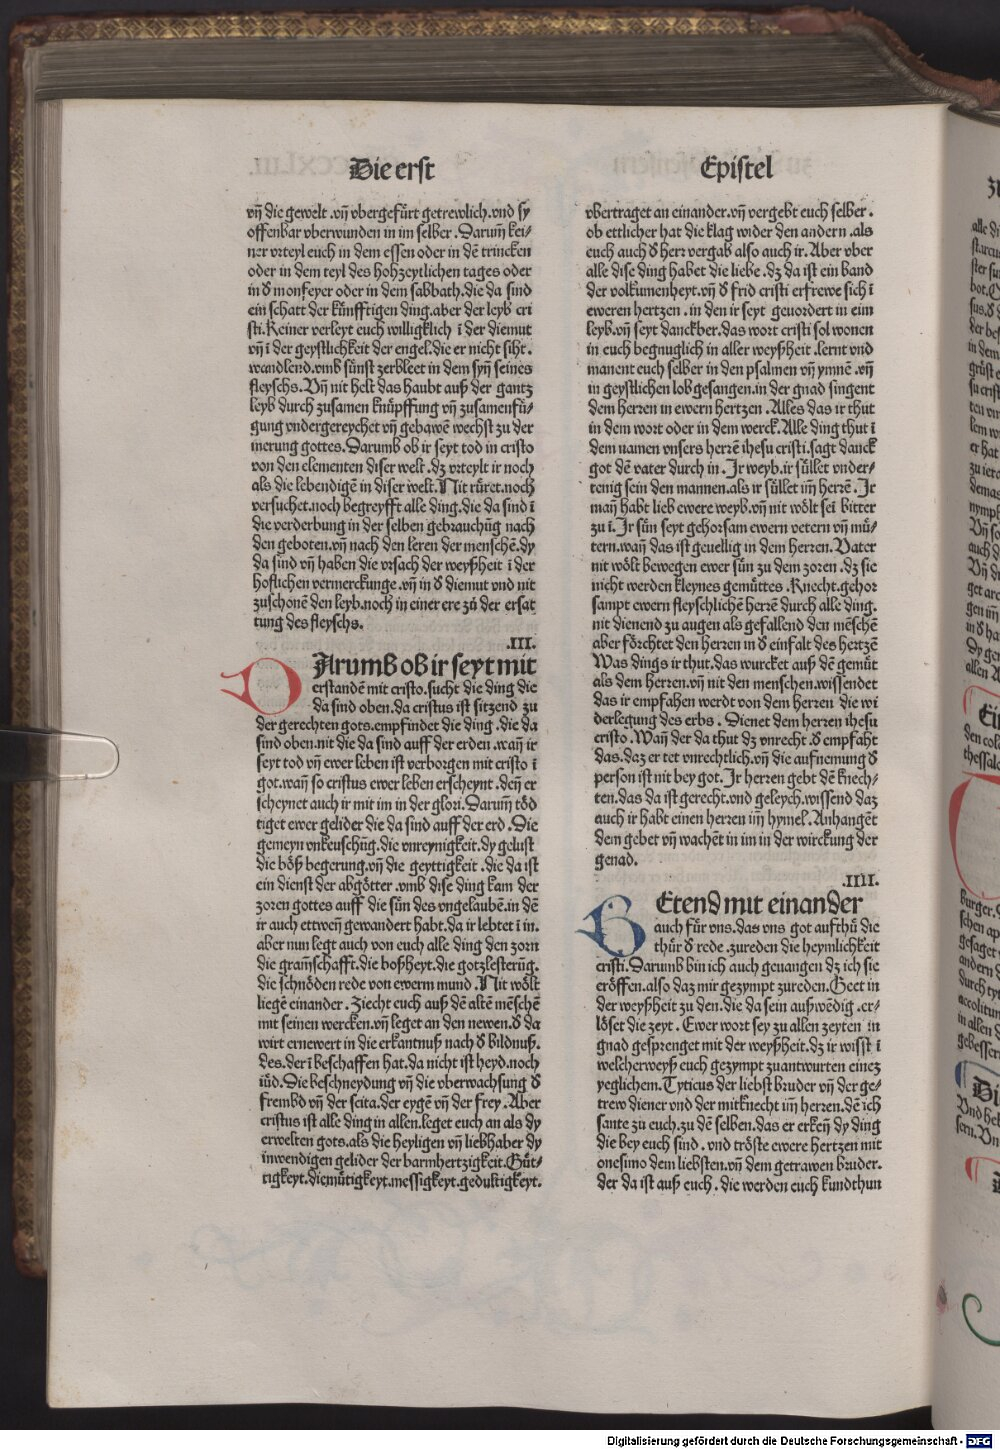 Die erst
Epistel
vñ die gewelt .vñ vbergefürt getrewlich.vnd sy
offenbar vberwunden in im selber .Darum̃ kei-
ner vrteyl euch in dem essen oder in dē trincken
oder in dem teyl des hohzeytlichen tages oder
in đ monfeyer oder in dem sabbath.die da sind
ein schatt der künfftigen ding.aber der leyb cri
sti.Keiner verleyt euch williglich ī der diemut
vñ ī der geystlichkeit der engel.die er nicht siht.
wandlend.vmb sünst zerbleet in dem syñ seines
fleyschs. Vñ nit helt das haubt auß der gantz
leyb durch zusamen knüpffung vñ zusamenfü-
gung vndergereychet vñ gebawē wechst zu der
merung gottes.Darumb ob ir seyt tod in cristo
von den elementen diser welt .dz vrteylt ir noch
als die lebendigē in diser welt.Nit rüret.noch
versuchet.noch begreyfft alle ding.die da sind ī
die verderbung in der selben gebrauchūg nach
den geboten.vñ nach den leren der menschē.dy
da sind vñ haben die vrsach der weyßheit ī der
hoflichen vermerckunge .vñ in đ diemut vnd nit
zuschonē den leyb.noch in einer ere zů der ersat
tung des fleyschs.
.III.
DArumb ob ir seyt mit
erstandē mit cristo.sucht die ding die
da sind oben.da cristus ist sitzend zu
der gerechten gots.empfindet die ding .die da
sind oben.nit die da sind auff der erden .wañ ir
seyt tod vñ ewer leben ist verborgen mit cristo ī
got.wañ so cristus ewer leben erscheynt .deñ er
scheynet auch ir mit im in der glori.Darum̃ töd
tiget ewer gelider die da sind auff der erd .Die
gemeyn vnkeuschūg.die vnreynigkeit.dy gelust
die böß begerung.vñ die geyttigkeit .die da ist
ein dienst der abgötter .vmb dise ding kam der
zoren gottes auff die sün des vngelaubē.in dē
ir auch ettweñ gewandert habt.da ir lebtet ī in.
aber nun legt auch von euch alle ding den zorn
die gram̃schafft.die boßheyt.die gotzlesterūg.
die schnöden rede von ewerm mund .Nit wölt
liegē einander . Ziecht euch auß dē altē mēschē
mit seinen wercken.vñ leget an den newen.đ da
wirt ernewert in die erkantnuß nach đ bildnuß.
des.der ī beschaffen hat.da nicht ist heyd.noch
iüd.Die beschneydung vñ die vberwachsung đ
frembd vñ der scita.der eygē vñ der frey .Aber
cristus ist alle ding in allen.leget euch an als dy
erwelten gots.als die heyligen vñ liebhaber dy
inwendigen gelider der barmhertzigkeit.Güt-
tigkeyt.diemütigkeyt.messigkeyt.gedultigkeyt.
vbertraget an einander.vñ vergebt euch selber .
ob ettlicher hat die klag wider den andern .als
euch auch đ herr vergab also auch ir.Aber vber
alle dise ding habet die liebe .dz da ist ein band
der volkumenheyt.vñ đ frid cristi erfrewe sich ī
eweren hertzen .in den ir seyt geuordert in eim
leyb.vñ seyt danckber.das wort cristi sol wonen
in euch begnuglich in aller weyßheit .lernt vnd
manent euch selber in den psalmen vñ ymnē .vñ
in geystlichen lobgesangen.in der gnad singent
dem herren in ewern hertzen .Alles das ir thut
in dem wort oder in dem werck.Alle ding thut ī
dem namen vnsers herrē ihesu cristi.sagt danck
got dē vater durch in . Ir weyb.ir süllet vnder-
tenig sein den mannen.als ir süllet im̃ herrē . Ir
mañ habt lieb ewere weyb.vñ nit wölt seī bitter
zu ī. Ir sün seyt gehorsam ewern vetern vñ mü-
tern.wañ das ist geuellig in dem herren. Vater
nit wölt bewegen ewer sün zu dem zoren .dz sie
nicht werden kleynes gemüttes .Knecht.gehor
sampt ewern fleyschlichē herrē durch alle ding.
nit dienend zu augen als gefallend den mēschē
aber förchtet den herren in đ einfalt des hertzē
Was dings ir thut.das wurcket auß dē gemüt
als dem herren.vñ nit den menschen.wissendet
das ir empfahen werdt von dem herren die wi
derlegung des erbs . Dienet dem herren ihesu
cristo .Wañ der da thut dz vnrecht.đ empfaht
das.daz er tet vnrechtlich.vñ die aufnemung đ
person ist nit bey got. Ir herren gebt dē knech-
ten.das da ist gerecht.vnd geleych.wissend daz
auch ir habt einen herren im̃ hymel.Anhangēt
dem gebet vñ wachēt in im in der wirckung der
genad.
.IIII.
BEtend mit einander
auch für vns.das vns got aufthü die
thür đ rede .zureden die heymlichkeit
cristi.Darumb bin ich auch geuangen dz ich sie
eröffen.also daz mir gezympt zureden.Geet in
der weyßheit zu den.die da sein außwēdig .er-
löset die zeyt . Ewer wort sey zu allen zeyten in
gnad gesprenget mit der weyßheit.dz ir wisst ī
welcherweyß euch gezympt zuantwurten einez
yeglichem.Tyticus der liebst bruder vñ der ge-
trew diener vnd der mitknecht im̃ herren.dē ich
sante zu euch.zu dē selben.das er erkeñ dy ding
die bey euch sind . vnd tröste ewere hertzen mit
onesimo dem liebsten.vñ dem getrawen bruder.
der da ist auß euch .die werden euch kundthun
Digitalisierung gefördert durch die Deutsche Forschungsgemeinschaft - DFG